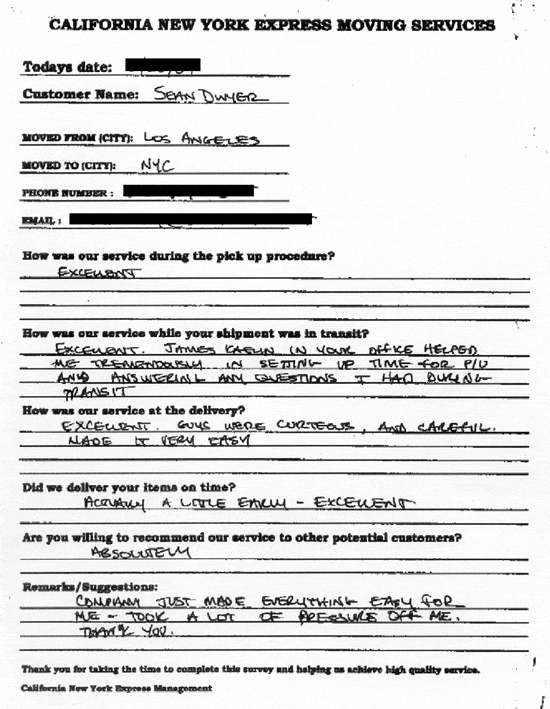 CALIFORNIA NEW YORK EXPRESS MOVING SERVICES
Todays date:
Customer Name: SEAN DWYER
MOVED FROM (CITY): LOS ANGELES
MOVED TO (CITY): NYC
PHONE NUMBER :
EMAIL :
How was our service during the pick up procedure?
EXCELLENT
How was our service while your shipment was in transit?
EXCELLENT. JAMES IN YOUR OFFICE HELPED
ME TREMENDOUSLY IN SETTING UP TIME FOR P/U
AND ANSWERING ANY QUESTIONS I HAD DURING
TRANSIT
How was our service at the delivery?
EXCELLENT. GUYS WERE CURTEOUS, AND CAREFUL.
MADE IT VERY EASY
Did we deliver your items on time?
ACTUALLY A LITTLE EARLY - EXCELLENT
Are you willing to recommend our service to other potential customers?
ABSOLUTELY
Remarks/Suggestions:
COMPANY JUST MADE EVERYTHING EASY FOR
ME - TOOK A LOT OF PRESSURE OFF ME.
THANK YOU.
Thank you for taking the time to complete this survey and helping us achieve high quality service.
California New York Express Management